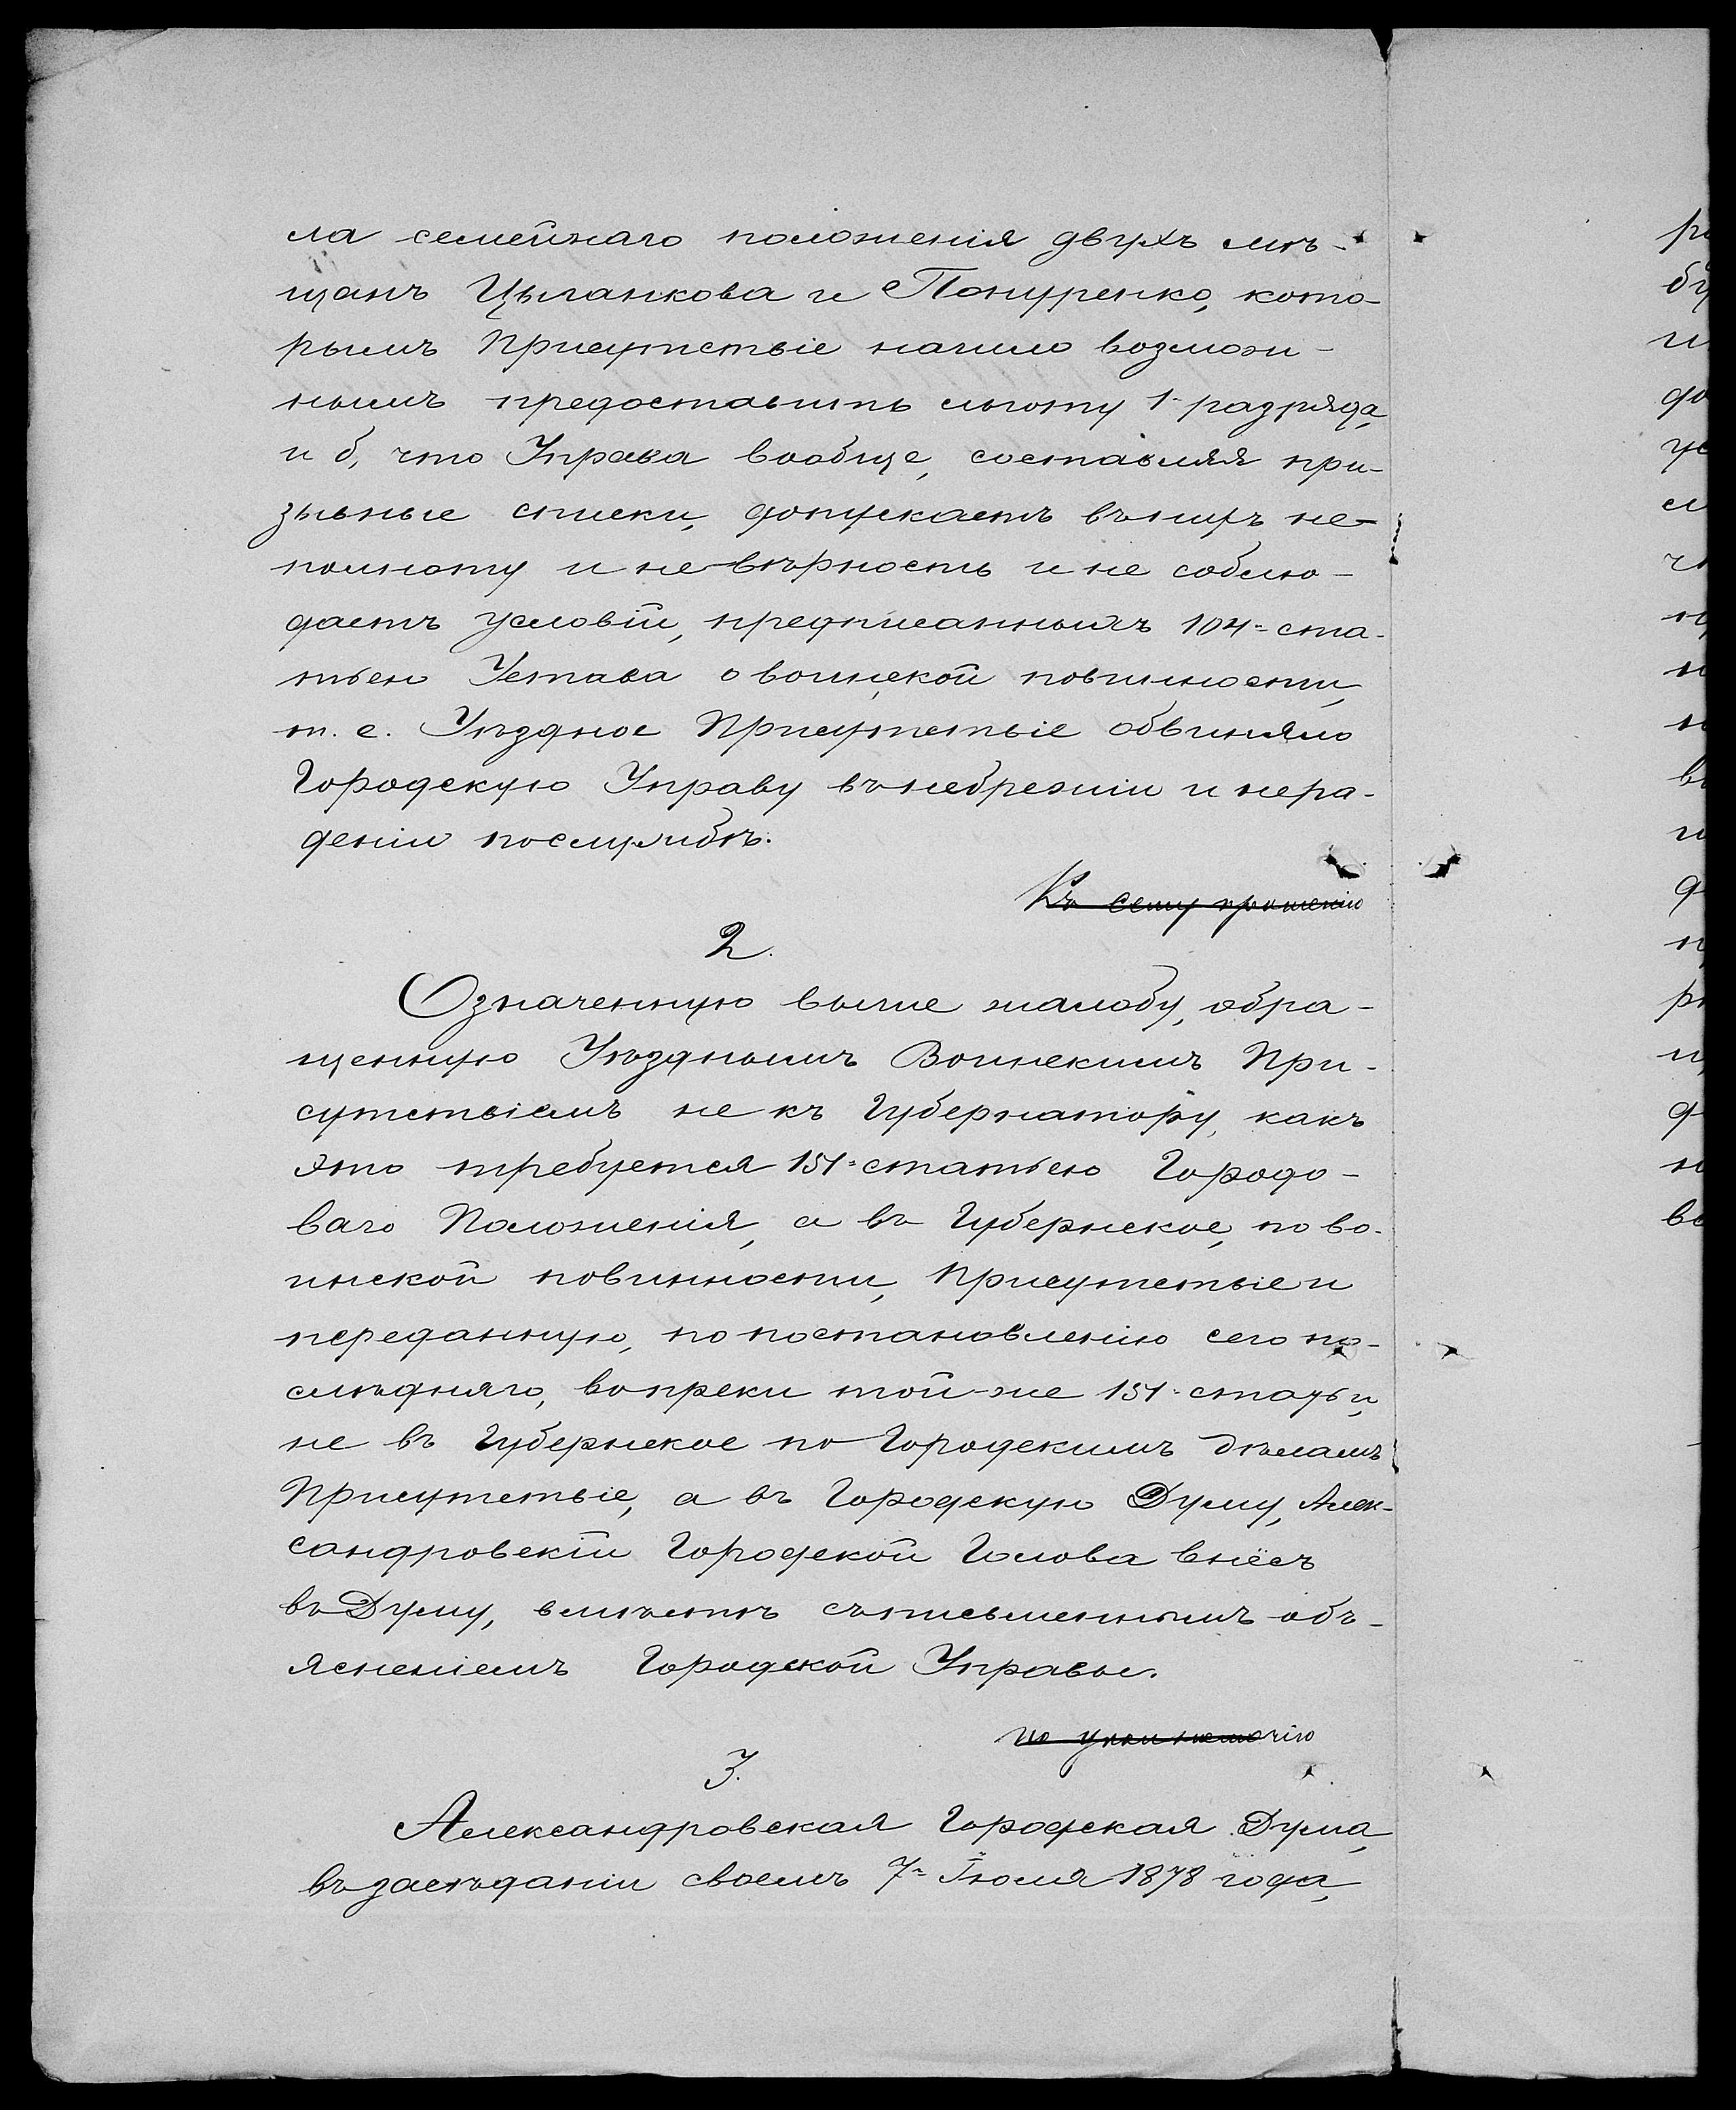 ла семейнаго положенія двухъ мѣ-
щанъ Цыганкова и Понуренко, кото-
рымъ Присутствіе нашло возмож-
нымъ предоставить льготу 1 разряда,
и б, что Управа вообще, составляя при-
зывные списки, допускаетъ въ нихъ не-
полноту и невѣрность и не соблю-
даетъ условій, предписанныхъ 104= ста-
тьею Устава о воинской повинности,
т. е. Уѣздное Присутствіе обвиняло
Городскую Управу въ небреженіи и нера-
деніи по службѣ.
Къ сему прошенію
2.
Означенную выше жалобу, обра-
щенную Уѣзднымъ Воинскимъ При-
сутствіемъ не къ Губернатору, какъ
это требуется 151= статьею Городо-
ваго Положенія, а въ Губернское, по во-
инской повинности, Присутствіе и
переданную, по постановленію сего по-
слѣдняго, вопреки той-же 151= статьи,
не въ Губернское по Городскимъ дѣламъ
Присутствіе, а въ Городскую Думу, Алек-
сандровскій Городской Голова внёсъ
въ Думу, вмѣстѣ съ письменнымъ объ-
ясненіемъ Городской Управы.
по уполномочію
3.
Александровская Городская Дума,
въ засѣданіи своемъ 7= Іюля 1878 года,